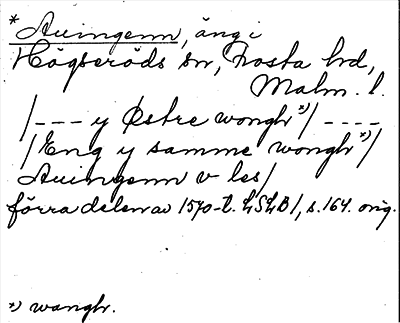 *Auingenn, äng i
Högseröds sn, Frosta hd,
Malm. l.
/--- y Østre wongh *)/ ----
/Eng y samme wongh *)/
Auingenn v les/
förra delen av 1570-t. LSLB/, s. 164. orig.
*) wangh.